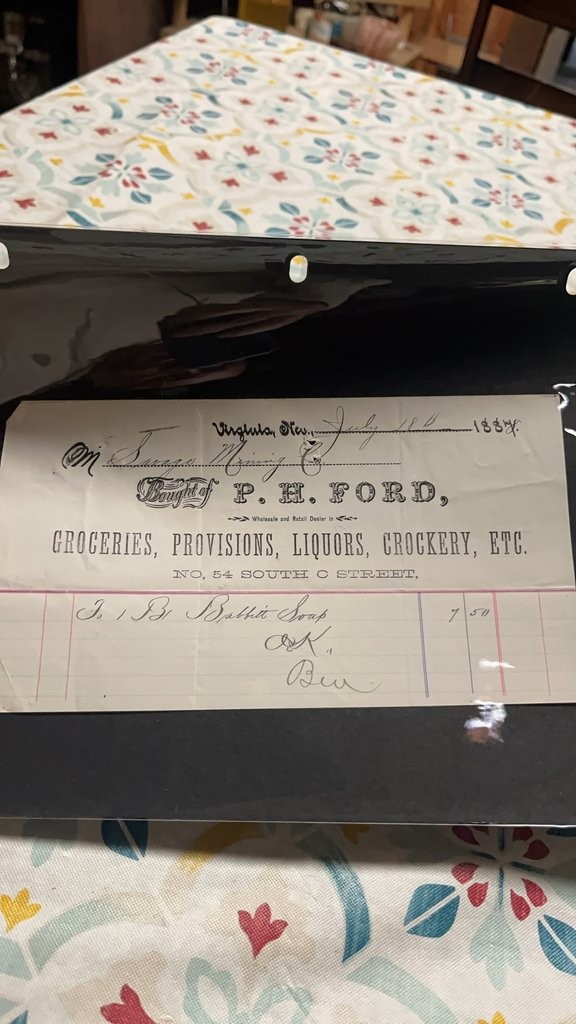 Virginia, Nev., July 18th 1887.
M Savage Mining Co.
Bought of P. H. FORD,
Wholesale and Retail Dealer in
GROCERIES, PROVISIONS, LIQUORS, CROCKERY, ETC.
NO. 54 SOUTH C STREET.
To 1 Bx Babbitt Soap 7 50
OK.,